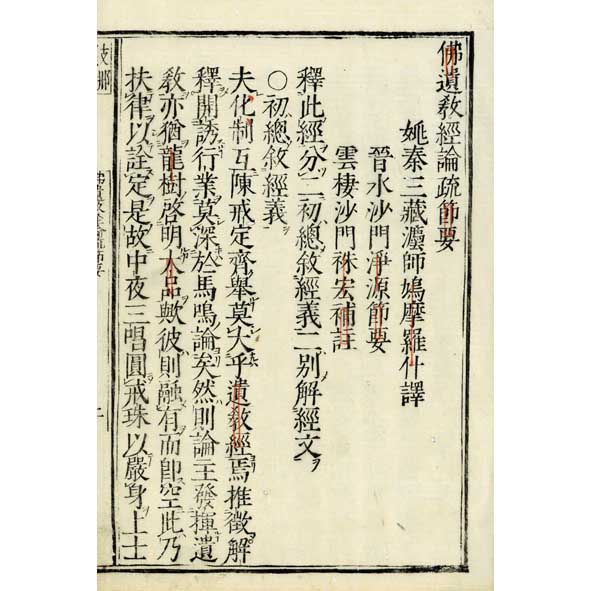 佛遺教經論疏節要
姚秦三藏灋師鳩摩羅什譯
晉水沙門淨源節要
雲棲沙門袾宏補註
釋此經分二初總敘經義二別解經文
○初總敘經義
夫化制互陳戒定齊舉莫大乎遺教經焉推徵解
釋開誘行業莫深於馬鳴論矣然則論主發揮遺
敎亦猶龍樹啓明大品歟彼則融有而卽空此乃
扶律以詮定是故中夜三唱圓戒珠以嚴身上士
佛遺敎經論疏節要